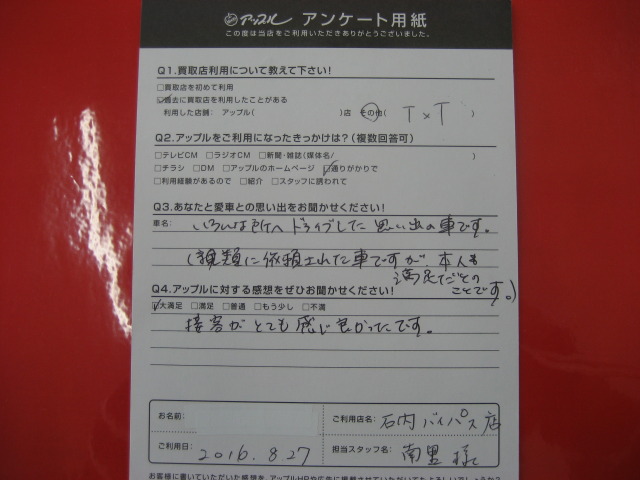 アップル アンケート用紙
この度は当店をご利用いただきありがとうございました。
Q1.買取店利用について教えて下さい!
□買取店を初めて利用
☑過去に買取店を利用したことがある
利用した店舗: アップル( )店 その他( T×T )
Q2.アップルをご利用になったきっかけは?(複数回答可)
□テレビCM □ラジオCM □新聞・雑誌(媒体名/ )
□チラシ □DM □アップルのホームページ ☑通りがかりで
□利用経験があるので □紹介 □スタッフに誘われて
Q3.あなたと愛車との思い出をお聞かせください!
車名: いろんな所へドライブした思い出の車です。
(親類に依頼された車ですが、本人も
満足だとの
ことです。)
Q4.アップルに対する感想をぜひお聞かせください!
☑大満足 □満足 □普通 □もう少し □不満
接客がとても感じ良かったです。
お名前:
ご利用店名: 石内バイパス店
ご利用日: 2016.8.27
担当スタッフ名: 南里 様
お客様に書いていただいた感想を、アップルHPや広告に掲載させていただいてもよろしいでしょうか?